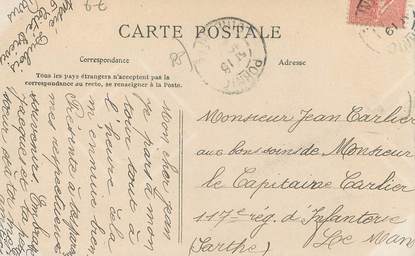 CARTE POSTALE
Correspondance
Adresse
Tous les pays étrangers n'acceptent pas la
correspondance au recto, se renseigner à la Poste.
Mon cher Jean
je pars à mon
tour tout à
l'heure de la
m'ennuie bien
mes respectueux
souvenirs. Embrasse
Jacques et ta
sœur
Monsieur Jean Carlier
aux bons soins de Monsieur
le Capitaine Carlier
117e rég. d'Infanterie
(Sarthe) Le Mans